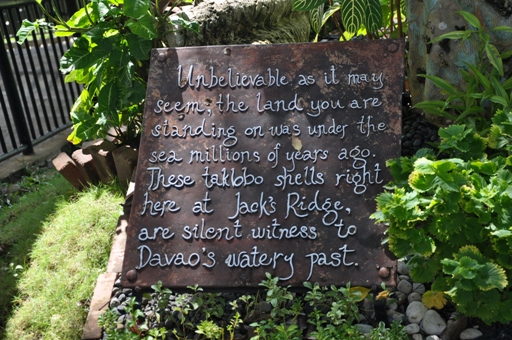 Unbelievable as it may
seem, the land you are
standing on was under the
sea millions of years ago.
These taklobo shells right
here at Jack's Ridge,
are silent witness to
Davao's watery past.